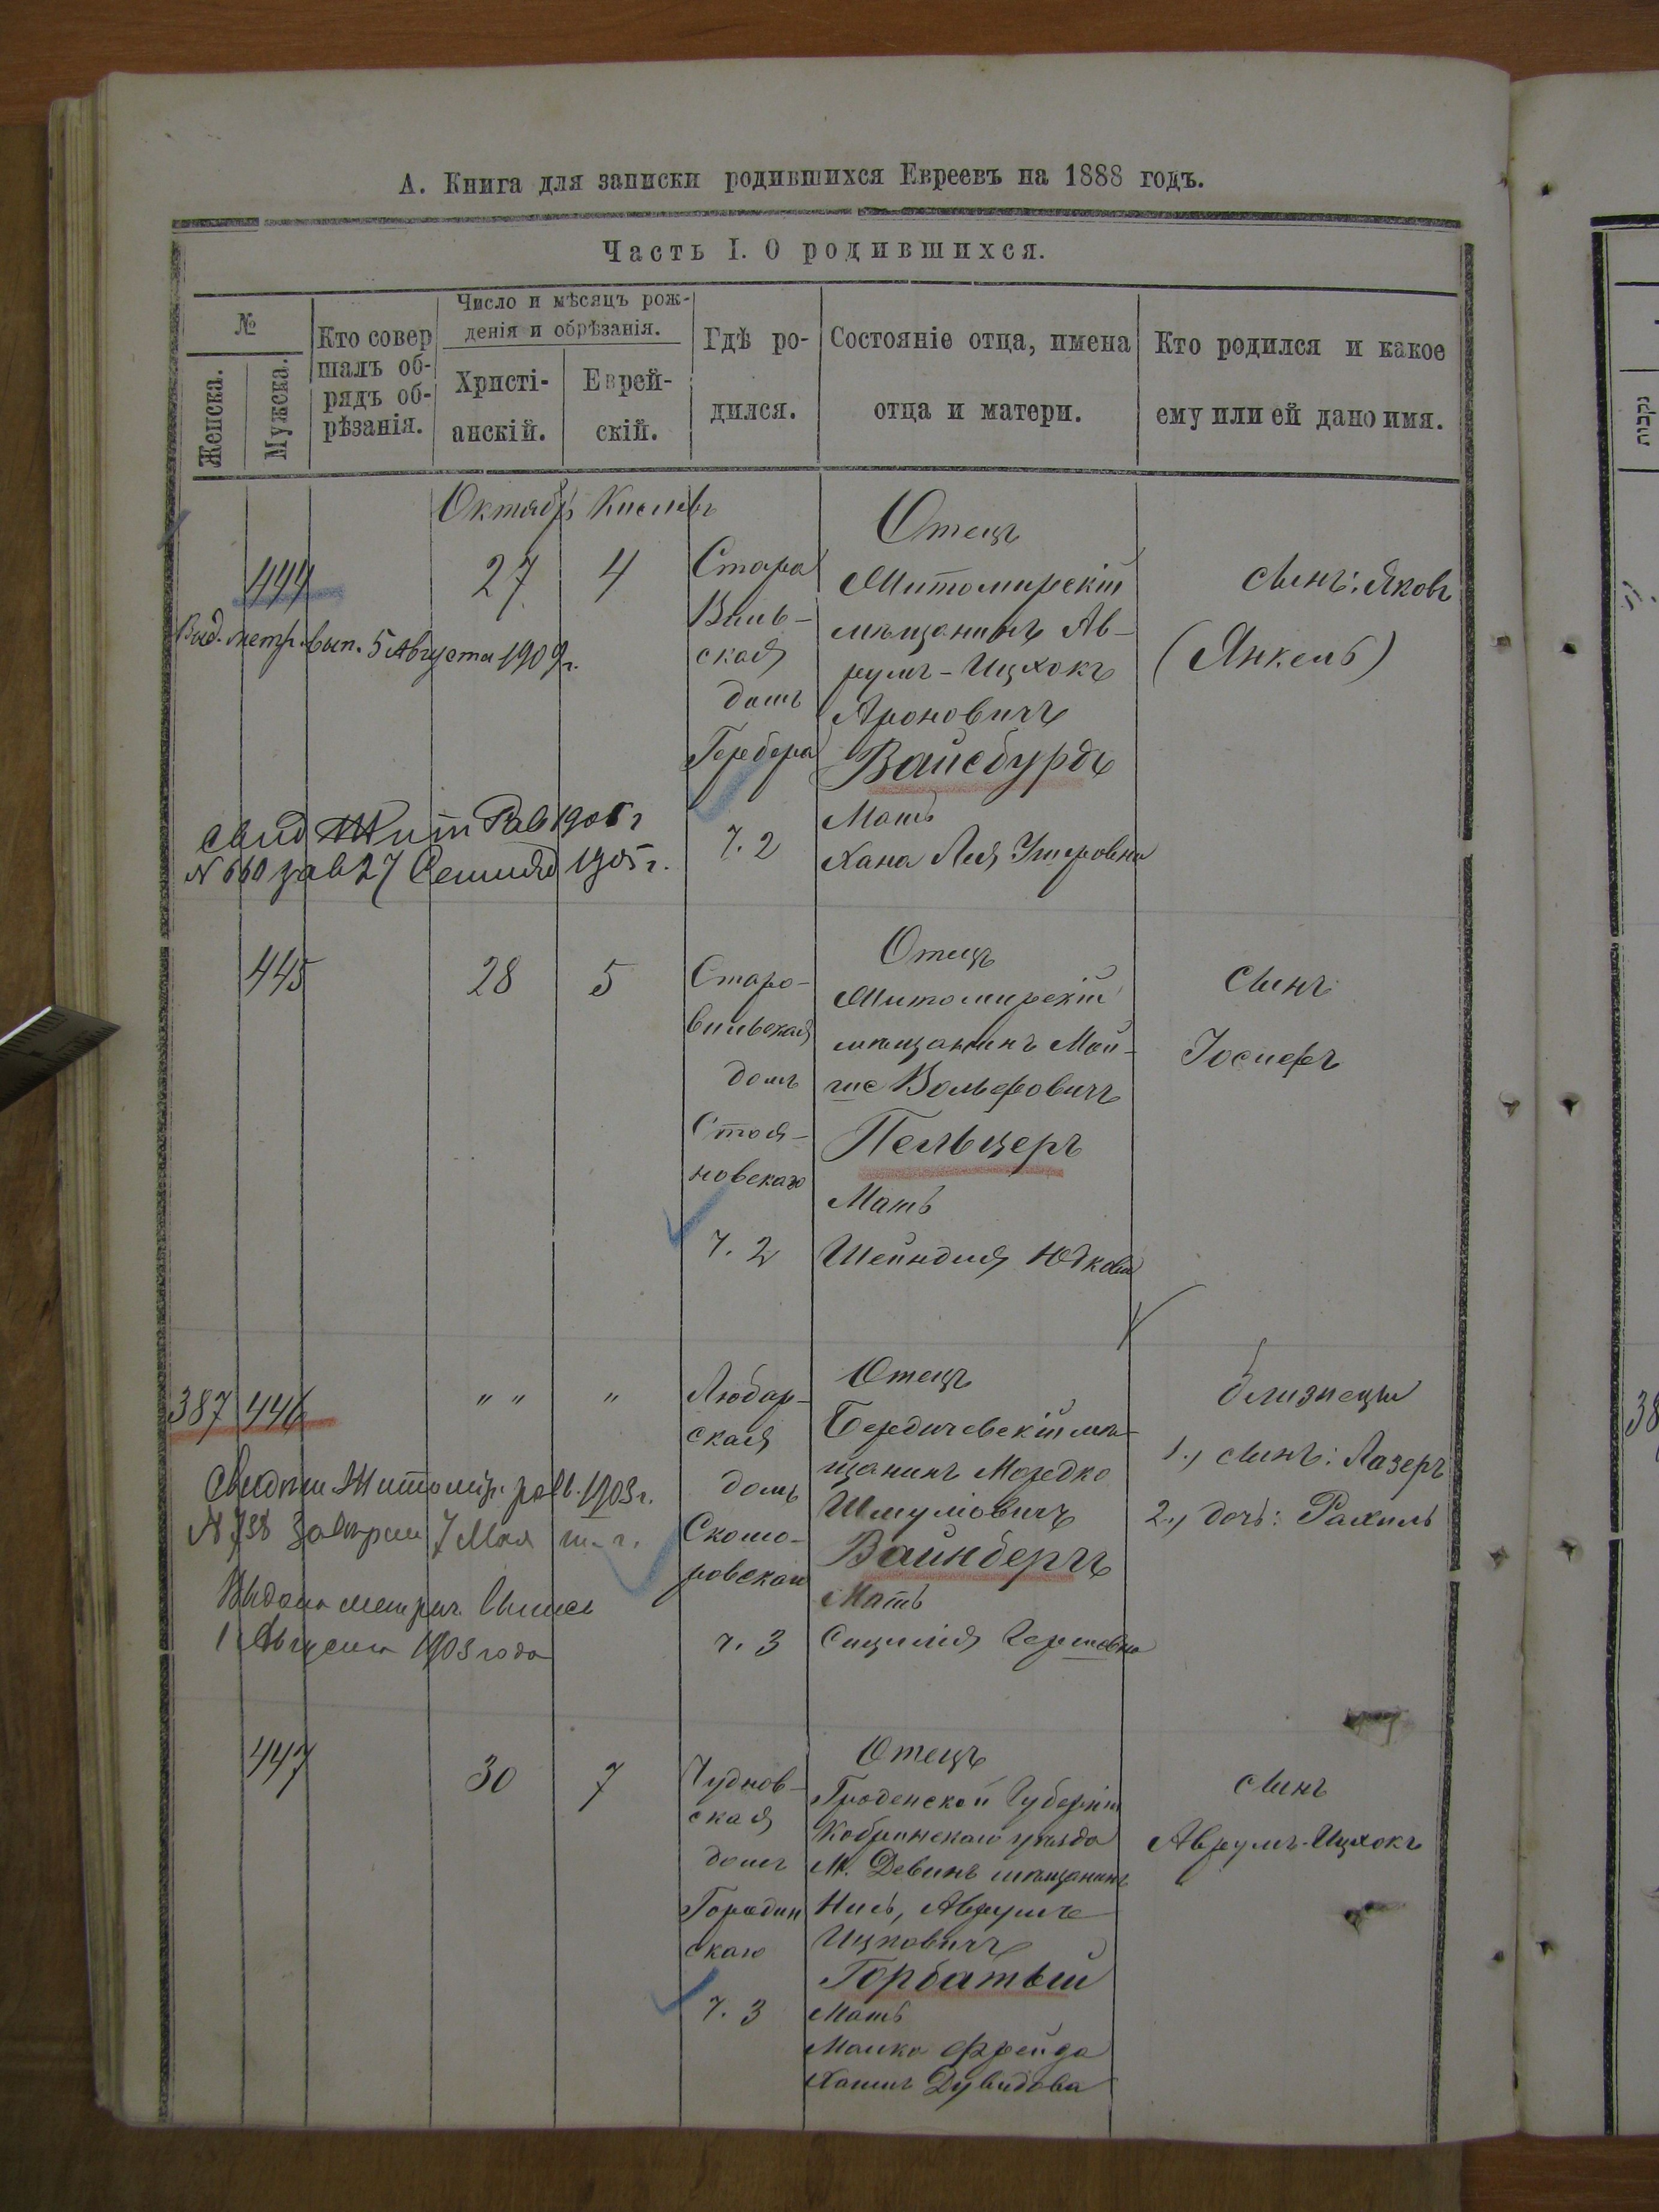 А. Книга для записки родившихся Евреевъ на 1888 годъ.
Часть I. О родившихся.
№
Женска.
Мужска.
Кто совер
шалъ об-
рядъ об-
рѣзанія.
Число и мѣсяцъ рож-
денія и обрѣзанія.
Христі-
анскій.
Еврей-
скій.
Гдѣ ро-
дился.
Состояніе отца, имена
отца и матери.
Кто родился и какое
ему или ей дано имя.
Октябр Кислевъ
444
27
4
Стара
Виль-
ская
домъ
Гербера
ч. 2
Отецъ
Житомирскій
мѣщанинъ Ав-
румъ-Ицхокъ
Ароновичъ
Вайсбурдъ
Мать
Хана Лея
сынъ: Яковъ
(Янкель)
Выд. метр. вып. 5 Августа 1909 г.
Свид Жит Рав 1905 г
N 660 за 27 1905 г.
445
28
5
Старо-
вильская
домъ
Стоя-
новскаго
ч. 2
Отецъ
Житомирскій
мѣщанинъ Мой-
ше Вольфовичъ
Пельцеръ
Мать
Шейндля
сынъ
Іосифъ
387 446
" "
"
Любар-
ская
домъ
Скомо-
ровской
ч. 3
Отецъ
Бердичевскій мѣ-
щанинъ Мордко
Шмуліовичъ
Вайнбергъ
Мать
Сицилія Гершовна
близнецы
1., сынъ: Лазеръ
2., дочь: Рахиль
Житомір. равв. 1903 г.
7 Мая т. г.
Выдана метрич. выпись
1 Августа 1903 года
447
30
7
Чуднов-
ская
домъ
Городин
скаго
ч. 3
Отецъ
Гродненской Губерніи
Кобринскаго уѣзда
М. Дивинъ мѣщанинъ
Аврумъ
Ицковичъ
Горбатый
Мать
Малка Фрейда
Дувидова
сынъ
Аврумъ-Ицхокъ
נקבות
38